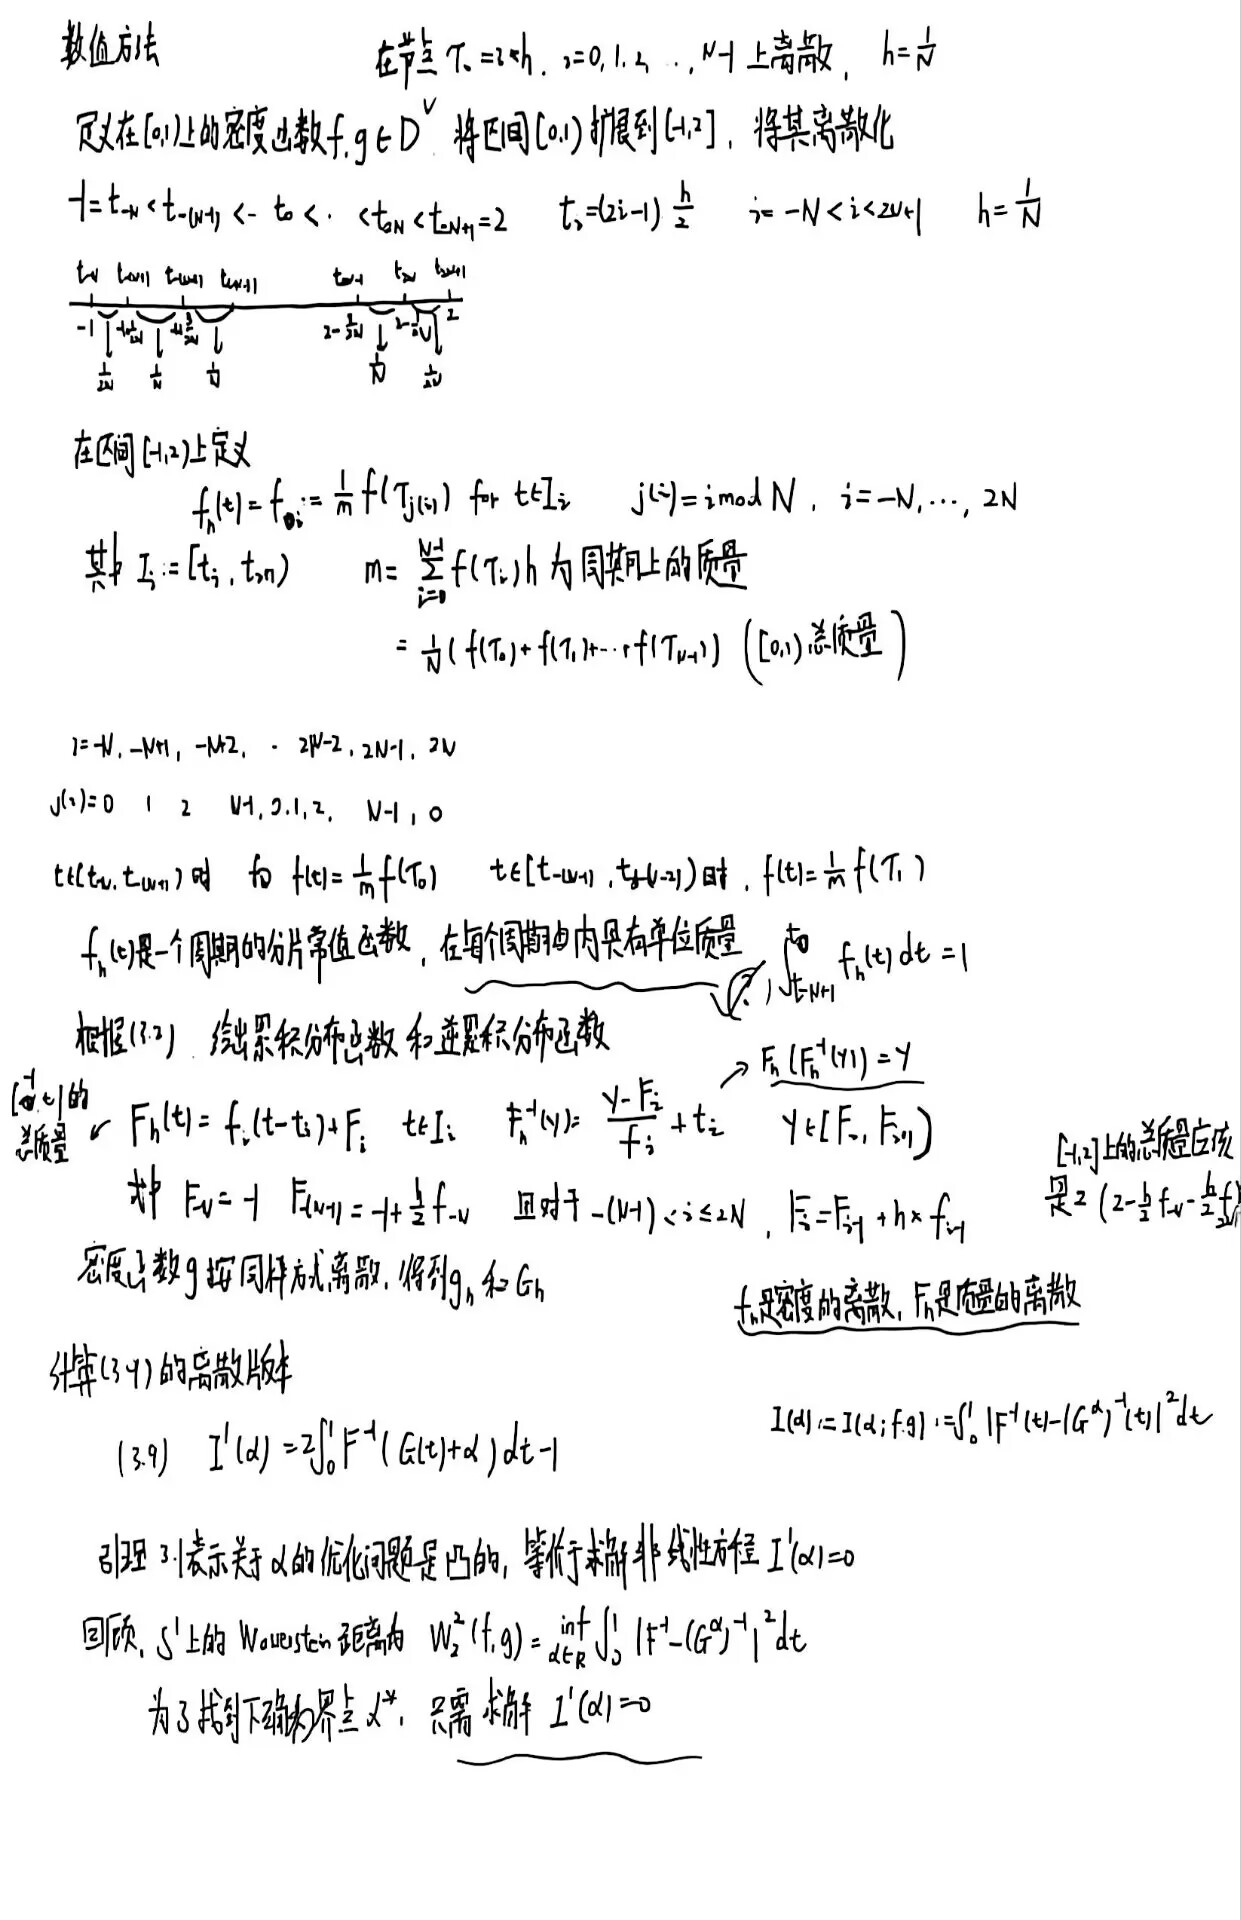 数值方法
在节点 τᵢ = i*h, i=0,1,2,…,N-1 上离散, h=1/N
定义在[0,1)上的密度函数 f,g∈D 将区间[0,1)扩展到[-1,2], 将其离散化
-1=t_{-N}<t_{-(N-1)}<… t_0<… <t_{2N}<t_{2N+1}=2 t_i=(2i-1)h/2 i=-N<i<2N+1 h=1/N
t_{-N} t_{-(N-1)} t_{2N-1} t_{2N} t_{2N+1}
-1 -1+1/2N -1+3/2N 2-3/2N 2-1/2N 2
1/2N 1/N 1/N 1/N 1/2N
在区间[-1,2)上定义
f_h(t)=f_i:=1/m f(τ_{j(i)}) for t∈I_i j(i)=i mod N, i=-N,…,2N
其中 I_i:=[t_i,t_{i+1}) m=∑_{i=0}^{N-1} f(τ_i)h 为周期上的质量
=1/N(f(τ_0)+f(τ_1)+…+f(τ_{N-1})) ([0,1)总质量)
i=-N, -N+1, -N+2, … 2N-2, 2N-1, 2N
j(i)=0 1 2 N-1,0,1,2, N-1,0
t∈[t_{-N},t_{-(N-1)})时 为 f(t)=1/m f(τ_0) t∈[t_{-(N-1)},t_{-(N-2)})时, f(t)=1/m f(τ_1)
f_h(t)是一个周期的分片常值函数, 在每个周期内具有单位质量
(?) ∫_{t_{-N+1}}^{t_0} f_h(t)dt=1
根据(3.2) 给出累积分布函数和逆累积分布函数
→ F_h(F_h^{-1}(y))=y
[-1,t]的
总质量
F_h(t)=f_i(t-t_i)+F_i t∈I_i F_h^{-1}(y)=(y-F_i)/f_i+t_i y∈[F_i,F_{i+1})
[-1,2]上的总质量应该
是2(2-h/2 f_{-N}-h/2 f_{2N})
式中 F_{-N}=-1 F_{-(N-1)}=-1+h/2 f_{-N} 且对于-(N-1)<i≤2N, F_i=F_{i-1}+h*f_{i-1}
密度函数g按同样方式离散, 得到g_h和G_h
f_h是密度的离散, F_h是质量的离散
计算(3.4)的离散版本
I(α):=I(α;f,g):=∫_0^1|F^{-1}(t)-(G^α)^{-1}(t)|^2dt
(3.9) I'(α)=2∫_0^1 F^{-1}(G(t)+α)dt-1
引理3.1表示关于α的优化问题是凸的, 等价于求解非线性方程I'(α)=0
回顾, S^1上的Wasserstein距离为 W_2^2(f,g)=inf_{α∈R}∫_0^1|F^{-1}-(G^α)^{-1}|^2dt
为了找到下确界点α*, 只需求解 I'(α)=0